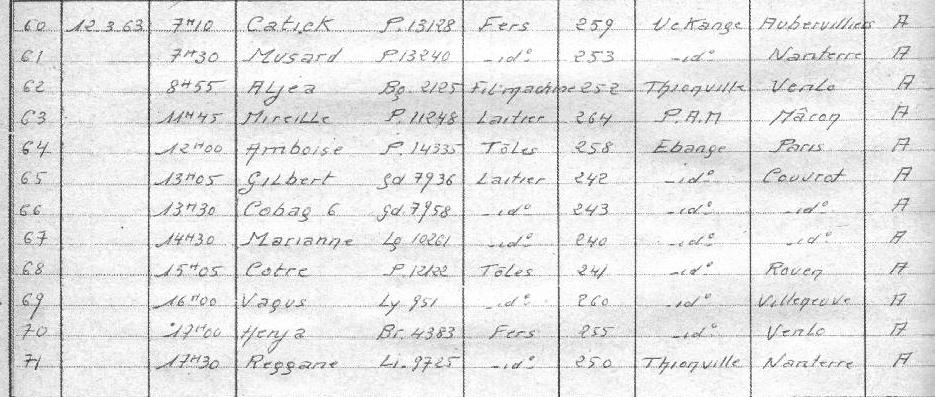 60 12.3.63 7H10 Catick P.13128 Fers 259 Uckange Aubervilliers A
61 7H30 Musard P13240 _id° 253 _id° Nanterre A
62 8H55 Aljea Bg. 2125 Fil machine 252 Thionville Venlo A
63 11H45 Mireille P.11248 Laitier 264 P.A.M Mâcon A
64 12H00 Amboise P.14335 Tôles 258 Ebange Paris A
65 13H05 Gilbert gd 7936 Laitier 242 _id° Couvrot A
66 13H30 Cobag 6 gd.7958 _id° 243 _id° _id° A
67 14H30 Marianne Lg 10261 _id° 240 _id° _id° A
68 15H05 Cotre P.12122 Tôles 241 _id° Rouen A
69 16H00 Vagus Ly 951 _id° 260 _id° Villeneuve A
70 17H00 Henja Br. 4383 Fers 255 _id° Venlo A
71 17H30 Reggane Li. 9725 _id° 250 Thionville Nanterre A